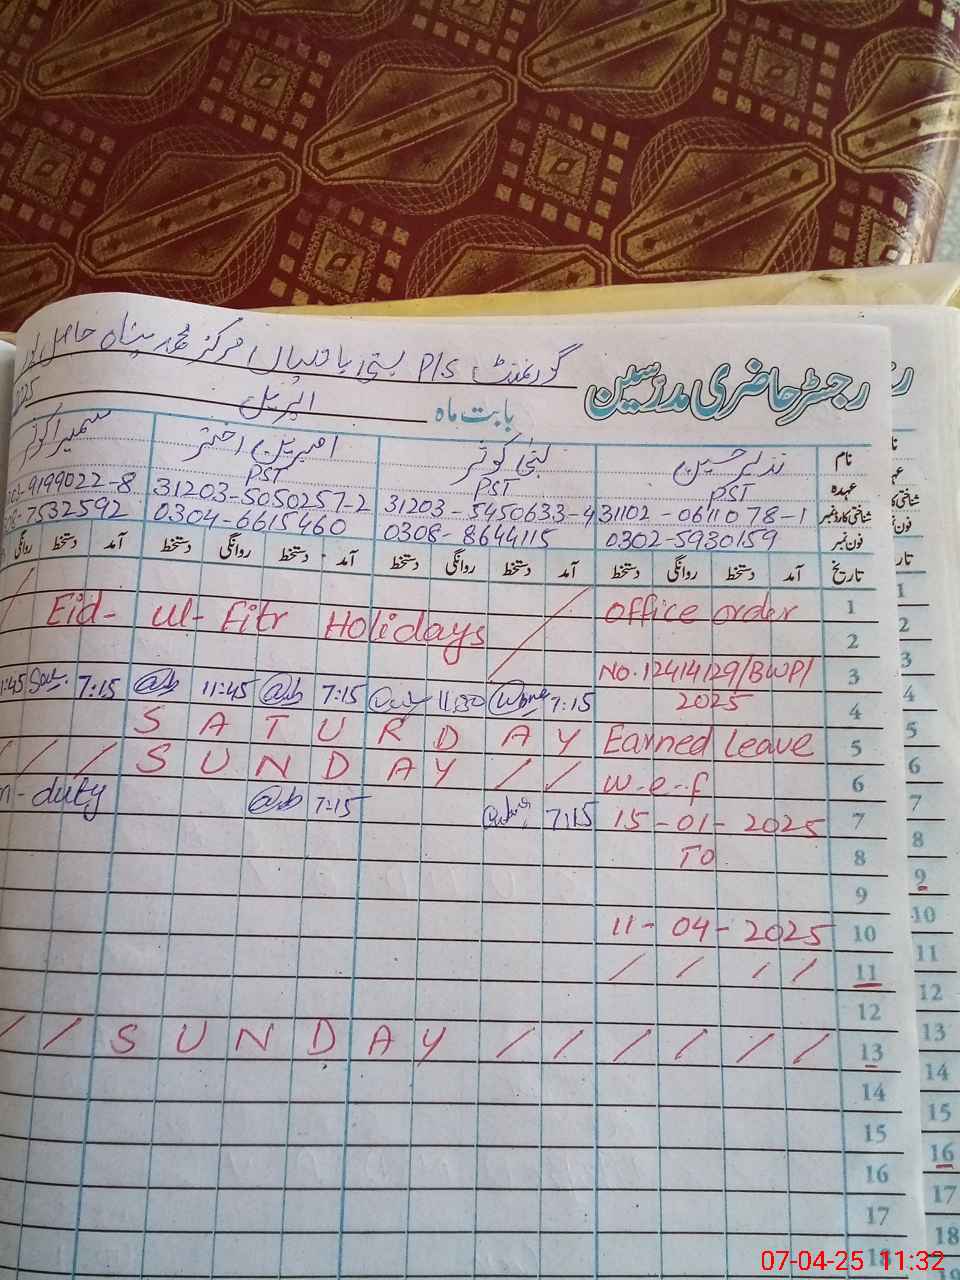 رجسٹر حاضری مدرسین گورنمنٹ P/S بستی مرکز محمد پناہ حاصل
بابت ماہ اپریل
نام نذیر حسین لبنیٰ کوثر امبرین اختر سمیرا کوثر
عہدہ PST PST PST
شناختی کارڈ نمبر 31102-0611078-1 31203-5450633-4 31203-5050257-2 9199022-8
فون نمبر 0302-5930159 0308-8644115 0304-6615460 7532592
تاریخ آمد دستخط روانگی دستخط آمد دستخط روانگی دستخط آمد دستخط روانگی دستخط آمد دستخط روانگی
Eid-ul-Fitr Holidays / office order 1
2
No.12414129/BWP/ 3
11:45 7:15 11:45 7:15 11:30 7:15 2025 4
S A T U R D A Y Earned Leave 5
/ / / S U N D A Y / / w.e.f 6
n-duty 7:15 7:15 15-01-2025 7
TO 8
9
11-04-2025 10
/ / / / 11
12
/ / S U N D A Y / / / / / / 13
14
15
16
17
18
1
2
3
4
5
6
7
8
9
10
11
12
13
14
15
16
17
18
07-04-25 11:32